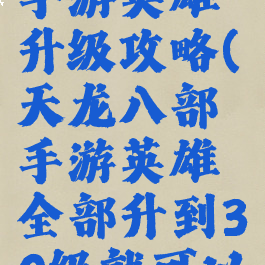 手游英雄
升级攻略(
天龙八部
手游英雄
全部升到3
0级就可以